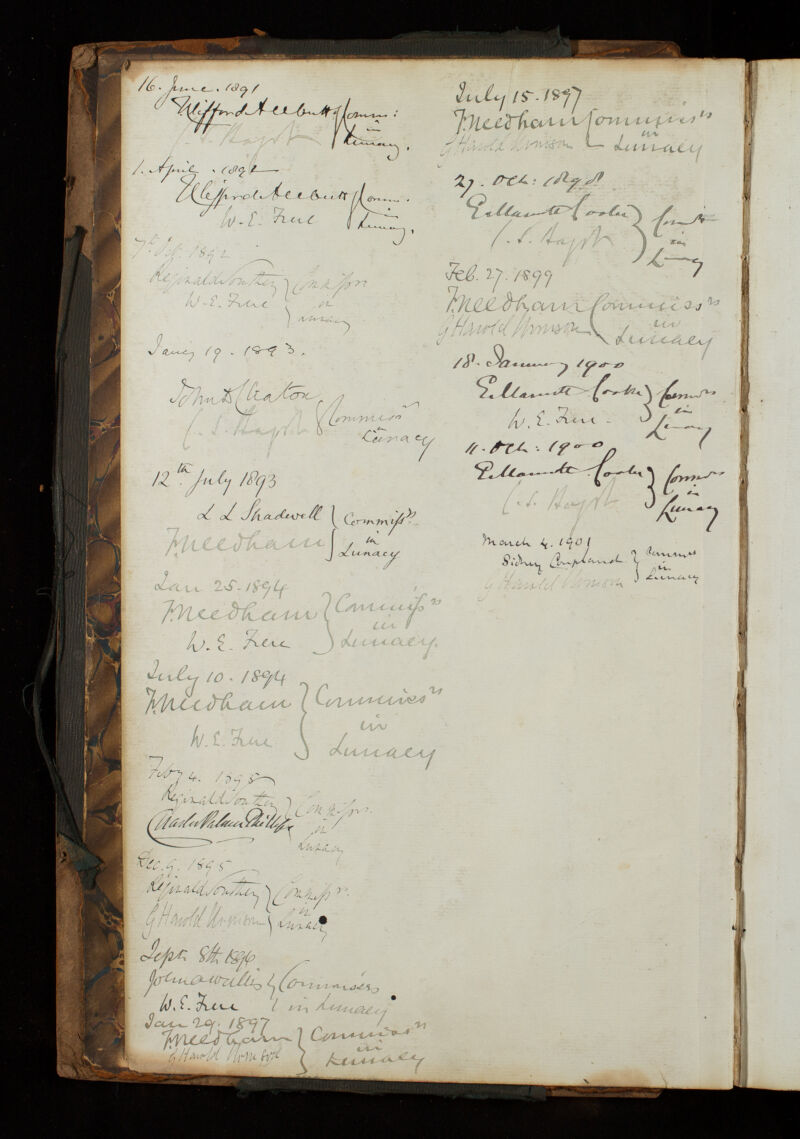 16. June. 1891
Clifford Allbutt } Comms:
C. S. Bagot in
Lunacy.
1. April. 1892
Clifford Allbutt } Comm.
W. E. Frere in
Lunacy.
1892
Reginald Southey } Commissrs
W. E. Frere in
Lunacy
Jany 19. 1893.
John D Cleaton
C. S. Bagot } Commissrs
in
Lunacy
12th July 1893
L L Shadwell } Commissrs
F. Needham in
Lunacy
Jan 25. 1894
F. Needham } Commissrs
in
W. E. Frere Lunacy.
July 10. 1894
F. Needham } Commissrs
in
W. E. Frere Lunacy
Feby 4. 1895
Reginald Southey } Commissrs.
Charles Palmer Phillips in
Lunacy
Dec. 9. 1895
Reginald Southey } Commissrs.
G Harold Urmson in Lunacy
Sept 8th 1896
John A Wallis } Commissrs
W. E. Frere in Lunacy
Jan 29. 1897
F. Needham } Commissrs
G Harold Urmson in
Lunacy
July 15. 1897
F. Needham } Commissrs
in
G Harold Urmson Lunacy
27. Oct: 1898
E. Marriott Cooke } Comrs
C. S. Bagot in
Lunacy
Feb. 27. 1899
F. Needham } Commissrs
G Harold Urmson in
Lunacy
18. January 1900
E. Marriott Cooke } Commrs
W. E. Frere. in
Lunacy
11. Oct: 1900
E. Marriott Cooke } Commrs
C. S. Bagot in
Lunacy
March 4. 1901
Sidney Coupland } Commrs
G Harold Urmson in
Lunacy